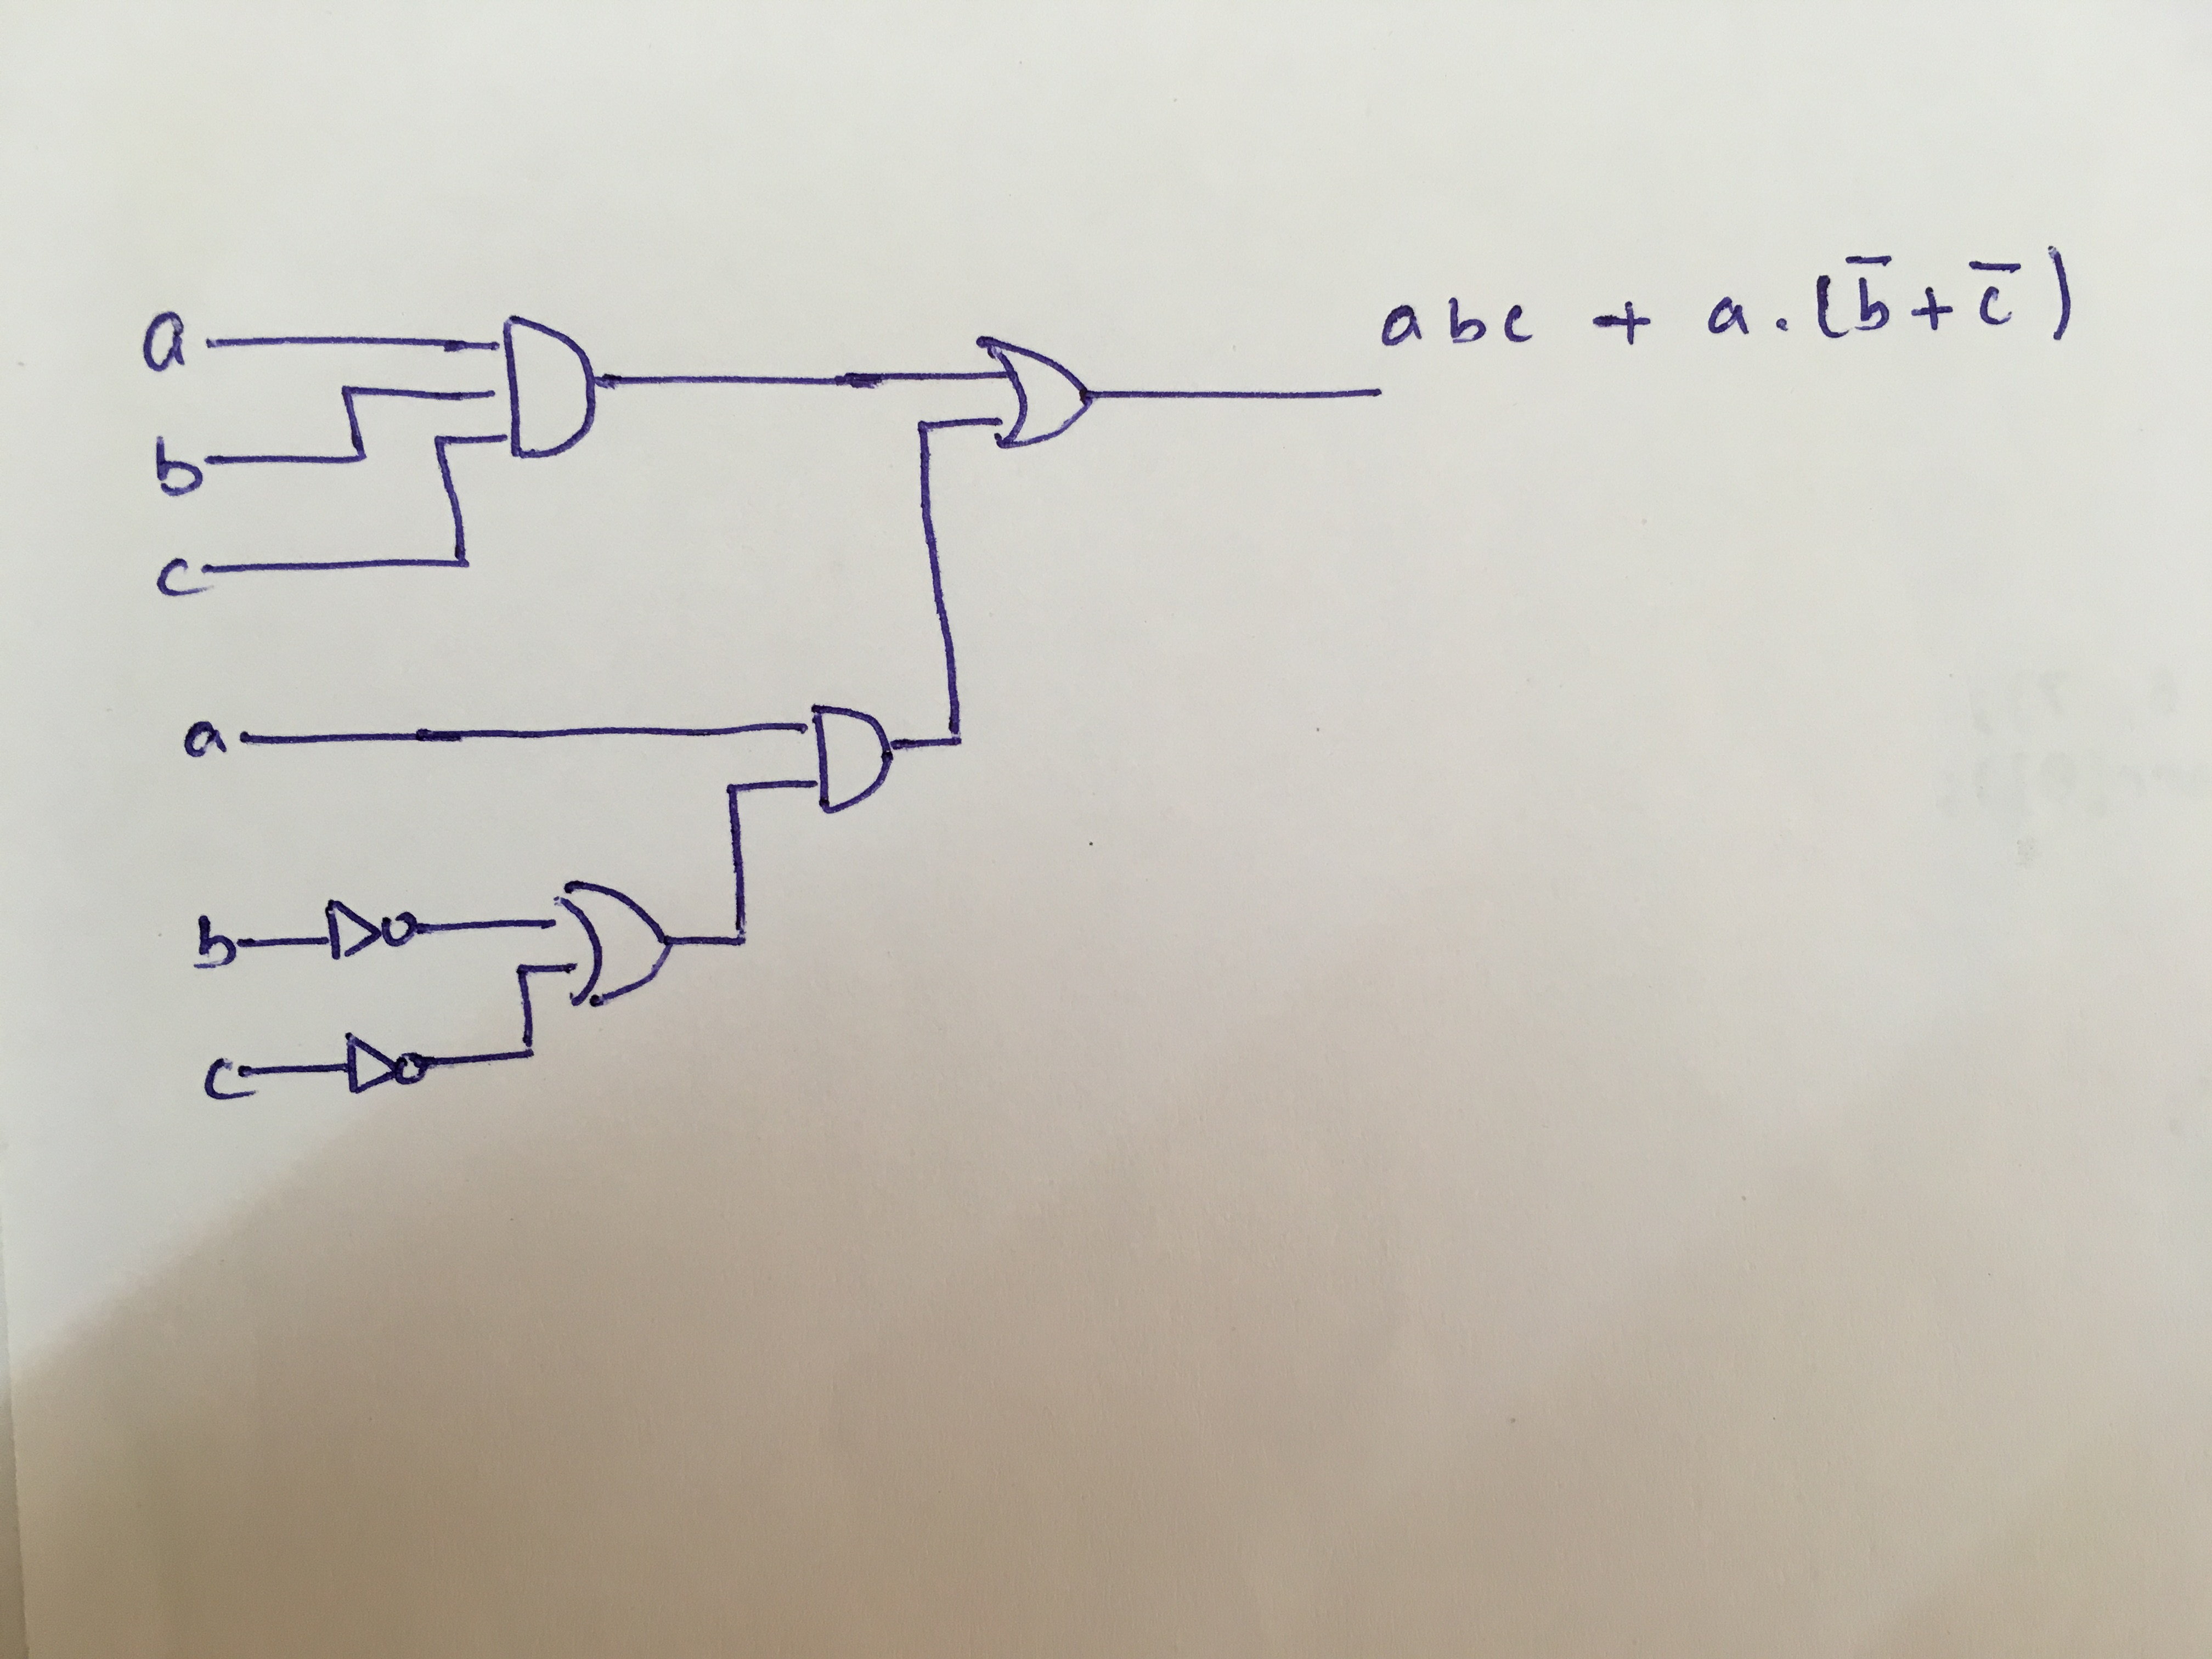 a
b
c
a
b
c
abc + a.(b̅+c̅)